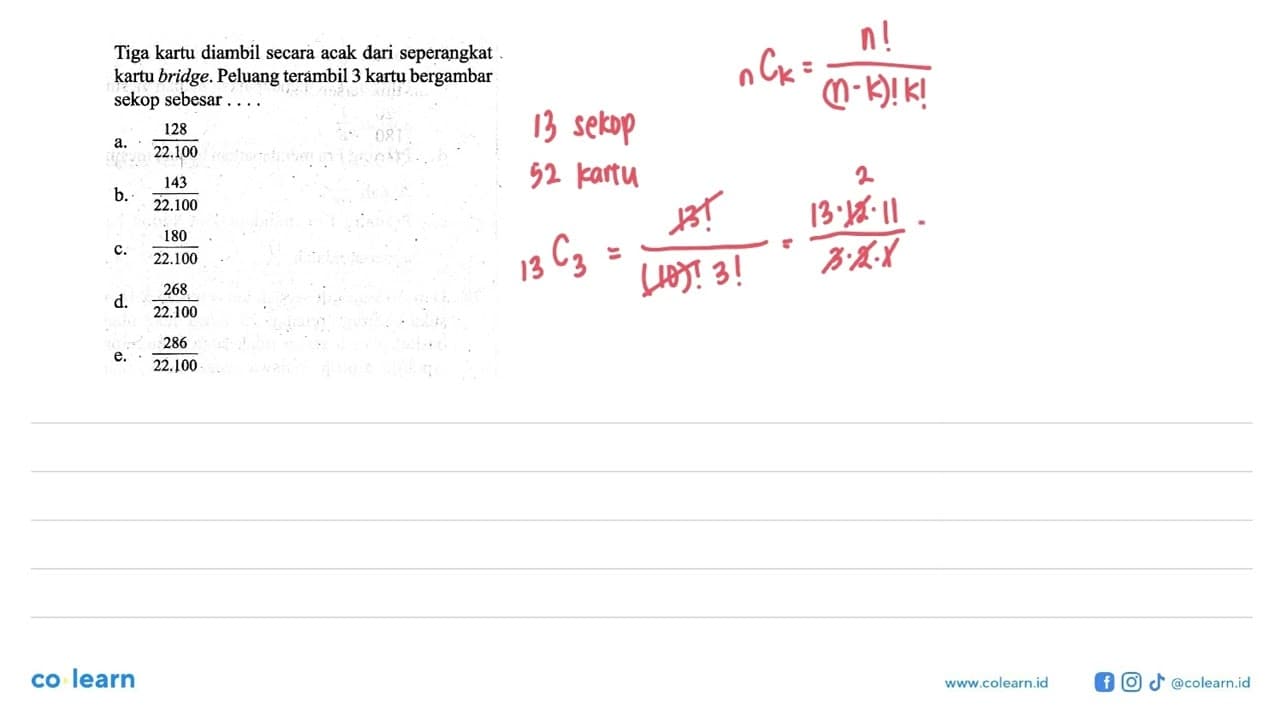 Tiga kartu diambil secara acak dari seperangkat
kartu bridge. Peluang terambil 3 kartu bergambar
sekop sebesar . . . .
a. 128/22.100
b. 143/22.100
c. 180/22.100
d. 268/22.100
e. 286/22.100
nCk = n!/(n-k)!k!
13 sekop
52 kartu
2
13C3 = 13!/(10)! 3! = 13·12·11/3·2·1
co learn
www.colearn.id
@colearn.id